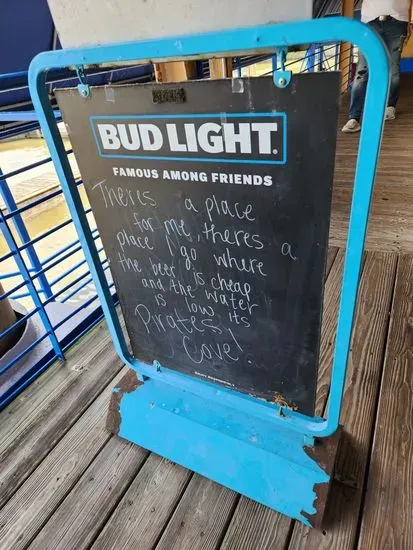 BUD LIGHT.
FAMOUS AMONG FRIENDS
Theres a place
for me, theres a
place I go where
the beer is cheap
and the water
is low, its
Pirates!
Cove!